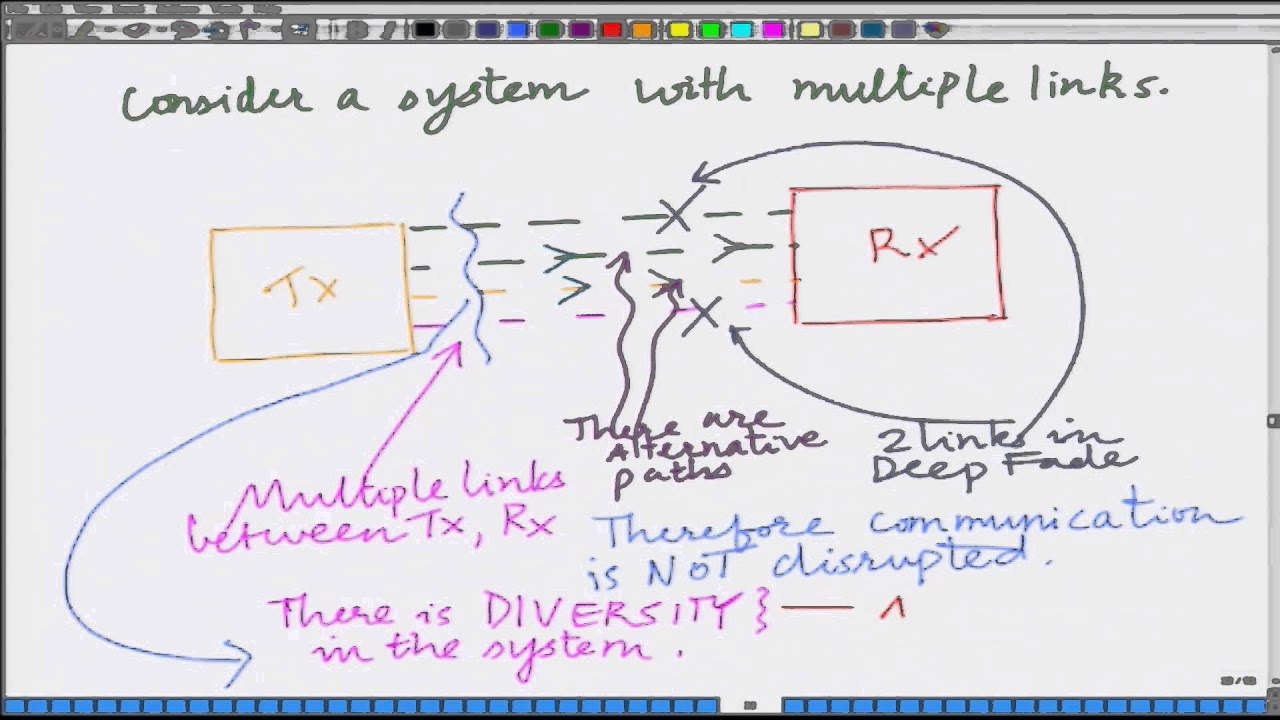 Consider a system with multiple links.
Tx
Rx
There are
Alternative
paths
2 links in
Deep Fade
Multiple links
between Tx, Rx
Therefore communication
is NOT disrupted.
There is DIVERSITY
in the system.